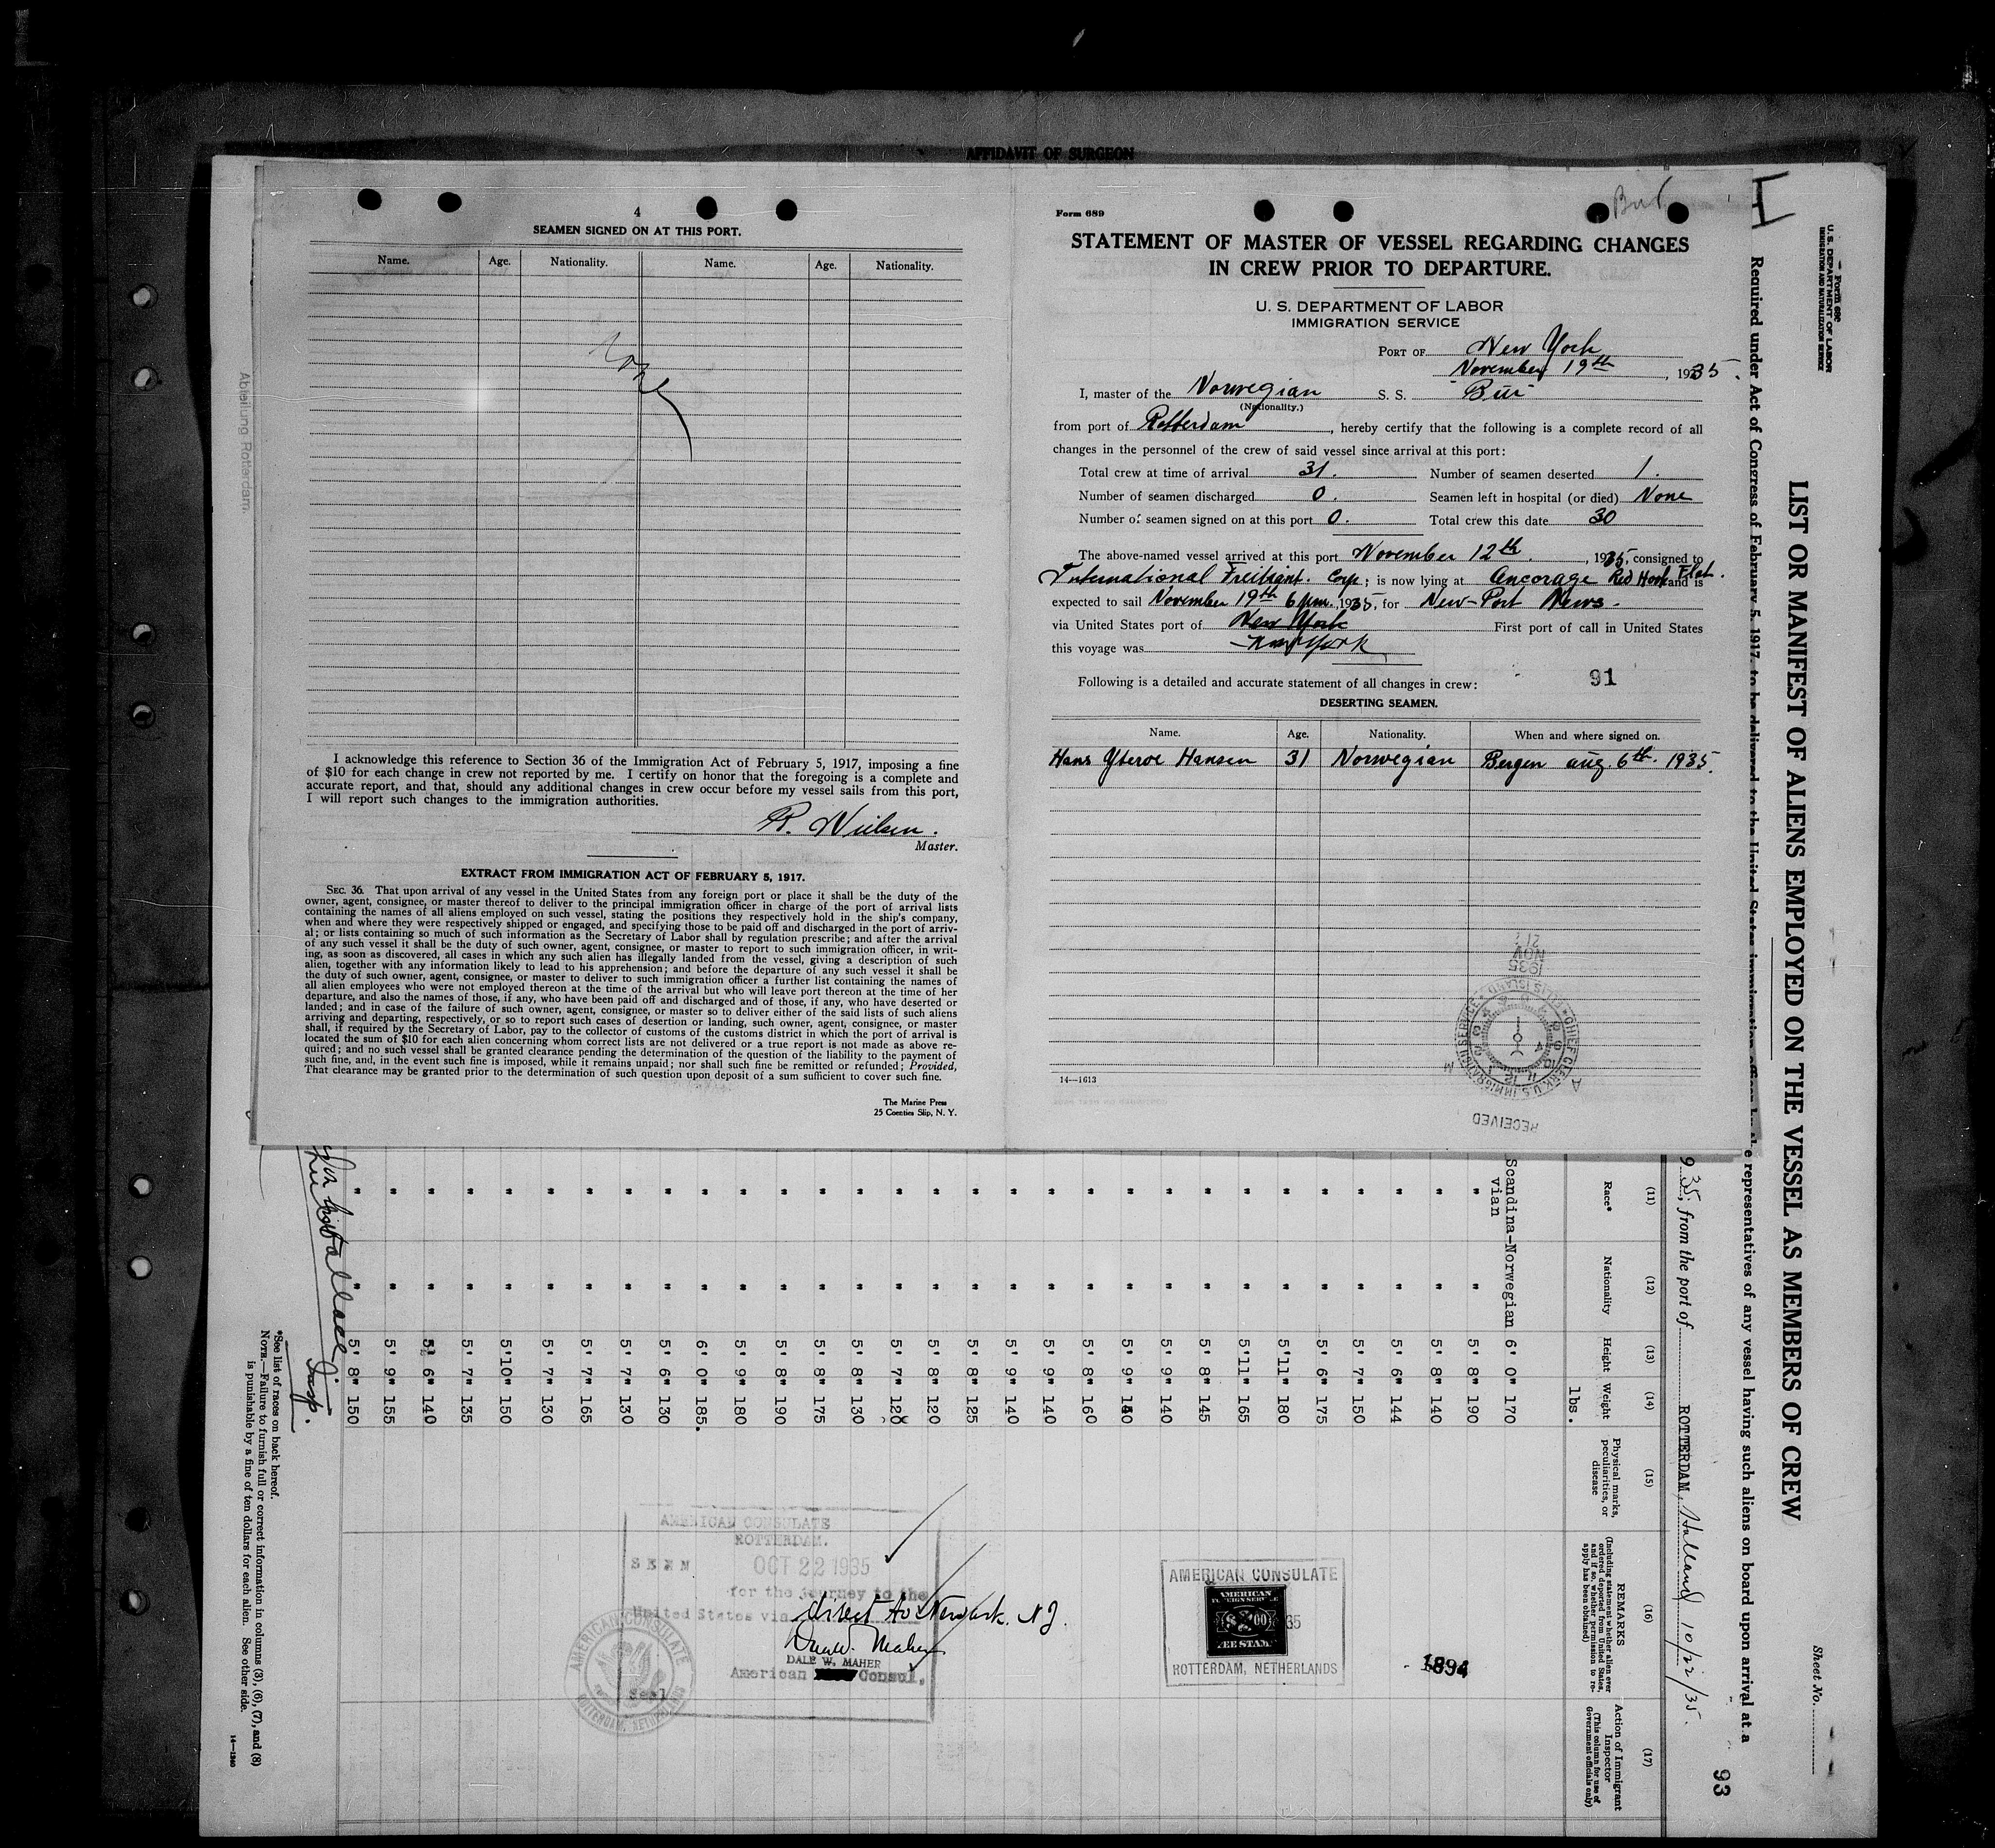 AFFIDAVIT OF SURGEON
4
SEAMEN SIGNED ON AT THIS PORT.
Name. Age. Nationality. Name. Age. Nationality.
None
I acknowledge this reference to Section 36 of the Immigration Act of February 5, 1917, imposing a fine
of $10 for each change in crew not reported by me. I certify on honor that the foregoing is a complete and
accurate report, and that, should any additional changes in crew occur before my vessel sails from this port,
I will report such changes to the immigration authorities.
R. Nielsen.
Master.
EXTRACT FROM IMMIGRATION ACT OF FEBRUARY 5, 1917.
SEC. 36. That upon arrival of any vessel in the United States from any foreign port or place it shall be the duty of the
owner, agent, consignee, or master thereof to deliver to the principal immigration officer in charge of the port of arrival lists
containing the names of all aliens employed on such vessel, stating the positions they respectively hold in the ship's company,
when and where they were respectively shipped or engaged, and specifying those to be paid off and discharged in the port of arriv-
al; or lists containing so much of such information as the Secretary of Labor shall by regulation prescribe; and after the arrival
of any such vessel it shall be the duty of such owner, agent, consignee, or master to report to such immigration officer, in writ-
ing, as soon as discovered, all cases in which any such alien has illegally landed from the vessel, giving a description of such
alien, together with any information likely to lead to his apprehension; and before the departure of any such vessel it shall be
the duty of such owner, agent, consignee, or master to deliver to such immigration officer a further list containing the names of
all alien employees who were not employed thereon at the time of the arrival but who will leave port thereon at the time of her
departure, and also the names of those, if any, who have been paid off and discharged and of those, if any, who have deserted or
landed; and in case of the failure of such owner, agent, consignee, or master so to deliver either of the said lists of such aliens
arriving and departing, respectively, or so to report such cases of desertion or landing, such owner, agent, consignee, or master
shall, if required by the Secretary of Labor, pay to the collector of customs of the customs district in which the port of arrival is
located the sum of $10 for each alien concerning whom correct lists are not delivered or a true report is not made as above re-
quired; and no such vessel shall be granted clearance pending the determination of the question of the liability to the payment of
such fine, and, in the event such fine is imposed, while it remains unpaid; nor shall such fine be remitted or refunded; Provided,
That clearance may be granted prior to the determination of such question upon deposit of a sum sufficient to cover such fine.
The Marine Press
25 Coenties Slip, N. Y.
Abteilung Rotterdam.
Form 689
Bur
STATEMENT OF MASTER OF VESSEL REGARDING CHANGES
IN CREW PRIOR TO DEPARTURE.
U. S. DEPARTMENT OF LABOR
IMMIGRATION SERVICE
PORT OF New York
November 19th, 1935.
I, master of the Norwegian S. S. "Bur"
(Nationality.)
from port of Rotterdam, hereby certify that the following is a complete record of all
changes in the personnel of the crew of said vessel since arrival at this port:
Total crew at time of arrival 31. Number of seamen deserted 1.
Number of seamen discharged 0. Seamen left in hospital (or died) None
Number of seamen signed on at this port 0. Total crew this date 30
The above-named vessel arrived at this port November 12th, 1935, consigned to
International Freihgnt. Corp; is now lying at Ancorage Red Hook Flat. and is
expected to sail November 19th 6 pm. 1935, for New-Port News.
via United States port of New York First port of call in United States
this voyage was New York
Following is a detailed and accurate statement of all changes in crew: 91
DESERTING SEAMEN.
Name. Age. Nationality. When and where signed on.
Hans Yteroe Hansen 31 Norwegian Bergen aug 6th. 1935.
RECEIVED
CHIEF CLERK U.S. IMMIGRATION SERVICE ELLIS ISLAND
1935 NOV 21
14—1613
Form 680
U. S. DEPARTMENT OF LABOR
IMMIGRATION AND NATURALIZATION SERVICE
LIST OR MANIFEST OF ALIENS EMPLOYED ON THE VESSEL AS MEMBERS OF CREW
Sheet No.
Required under Act of Congress of February 5, 1917, to be delivered to the United States immigration officer by the representatives of any vessel having such aliens on board upon arrival at a
93
935, from the port of ROTTERDAM, Holland 10/22/35.
(11) (12) (13) (14) (15) (16) (17)
Race* Nationality Height Weight
Physical marks, peculiarities, or disease
REMARKS
(Including statement whether alien ever ordered deported from United States, and if so, whether permission to re-apply has been obtained)
Action of Immigrant Inspector
(This column for use of Government officials only)
lbs.
Scandina-vian Norwegian 6' 0" 170
" " 5' 8" 190
" " 5' 8" 140
" " 5' 6" 144
" " 5' 7" 150
" " 5' 6" 175
" " 5'11" 180
" " 5'11" 165
" " 5' 8" 145
" " 5' 9" 140
" " 5' 9" 140
" " 5' 8" 160
" " 5' 9" 140
" " 5' 9" 140
" " 5' 8" 125
" " 5' 8" 120
" " 5' 7" 120
" " 5' 8" 130
" " 5' 8" 175
" " 5' 8" 190
" " 5' 9" 180
" " 6' 0" 185.
" " 5' 6" 130
" " 5' 7" 130
" " 5' 7" 165
" " 5' 7" 130
" " 5'10" 150
" " 5' 7" 135
" " 5' 6" 140
" " 5' 9" 155
" " 5' 8" 150
Insp.
1894
AMERICAN CONSULATE
AMERICAN FOREIGN SERVICE
FEE STAMP
ROTTERDAM, NETHERLANDS
AMERICAN CONSULATE
ROTTERDAM.
SEEN OCT 22 1935
for the journey to the
United States via direct to Newark. NJ.
Dale W. Maher
DALE W. MAHER
American Consul,
Seal
AMERICAN CONSULATE ROTTERDAM, NETHERLANDS
*See list of races on back hereof.
NOTE.—Failure to furnish full or correct information in columns (3), (6), (7), and (8)
is punishable by a fine of ten dollars for each alien. See other side.
14—1240